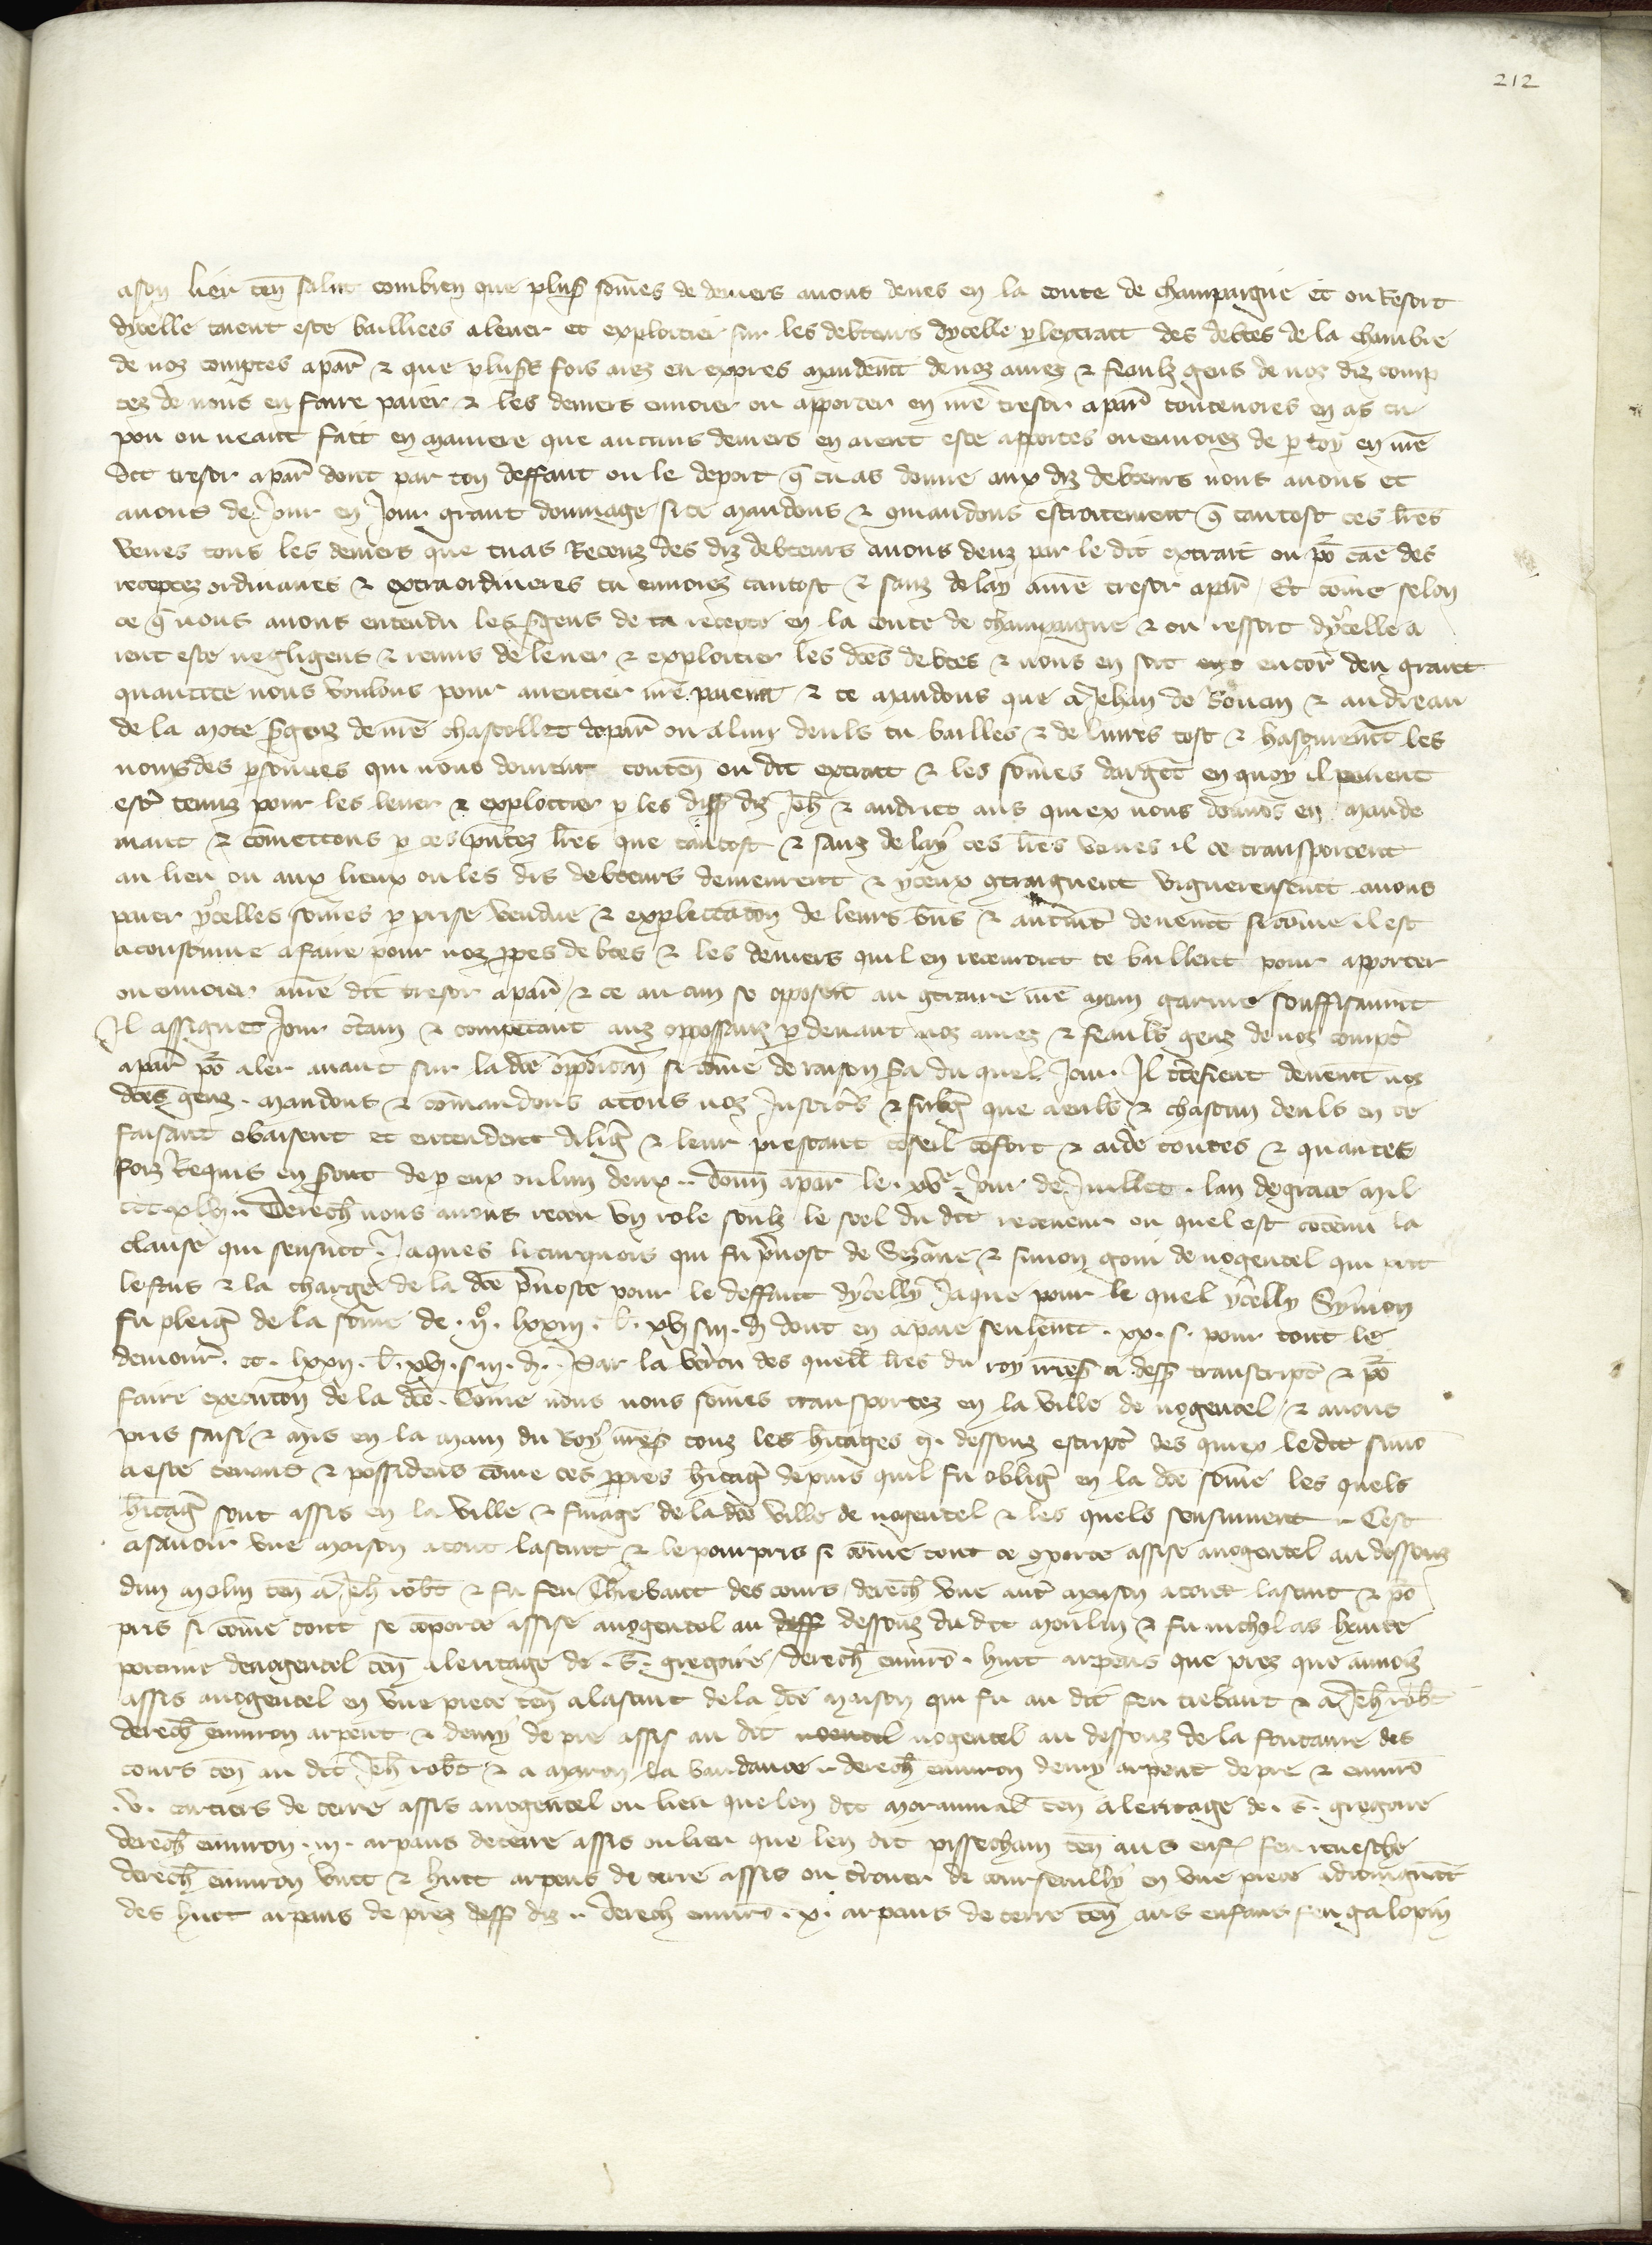 212
a son lieu ten̄ salut combien que plus̄ som̄es de deniers a nous deues en la conte de champaigne et ou Resort
dycelle taient este bailliees a lever et exploitier sur les debteurs dycelle p lextrait des debtes de la chambre
de noz comptes a par̄ & que plus̄s fois aiez eu expres mandem̄t de noz amez & feaulz gens de noz diz comp
tez de nous en faire paier & les deniers envoier ou apporter en nr̄e tresor a par̄ toutevoies en as tu
pou ou neant fait en maniere que aucuns deniers en aient este apportes ou envoiez de p toy en nr̄e
dit tresor a par̄ dont par ton deffaut ou le deport q̄ tu as donne aux diz debteurs nous avons eu
avons de Jour en Jour grant dommage si te mandons & 9mandons estroitement q̄ tantost ces lr̄es
veues tous les deniers que tu as Receuz des diz debteurs a nous deuz par le dit extrait ou po᷑ cāe des
receptez ordinaires & extraordineres tu envoiez tantost & sanz delay a nr̄e tresor a par̄ Et com̄e selon
ce q̄ nous avons entendu les s̄gens de ta recepte en la conte de champaigne & ou ressort dycelle a
ient este negligens & remis de lever & exploitier les dc̄es debtes & nous en soit encor̄ deu grant
quantite nous voulons pour avencier nr̄e paiem̄t & te mandons que a Jehan de & andreau
de la mote s̄gens de nr̄e chastellet de par̄ ou a lun deuls tu bailles & delivres tost & hastivem̄t les
noms des p̄sonnes qui nous doivent conten̄ ou dit extrait & les som̄es dargēt en quoy il peuent
estr̄ tenuz pour les lever & exploitier p les dess̄ diz Jeh̄ & andriet aus quiex nous donnōs en mande
mant & com̄ettons p ces pn̄tez lr̄es que tantost & sanz delay ces lr̄es veues il se transportent
au lieu ou aux lieux ou les dis debteurs demeurent & yceux 9traignent viguereusem̄t a nous
paier ycelles som̄es p prise vendue & explectacōn de leurs b̄ns & autrem̄t deuem̄t si com̄e il est
acoustume a faire pour noz pp̄es debtes & les deniers quil en recevront te baillent pour apporter
ou envoier a nr̄e dit tresor a par̄ & se aucun se opposoit au 9traire nr̄e main garnie souffisanm̄t
Il assignet Jour c̄tain & competant aus oppossanz p devant noz amez & feaulx gens de noz compt̄
a par̄ po᷑ aler avant sur la dc̄e opposicōn si com̄e de raison s̄a du quel Jour Il c̄tefient deuem̄t noz
dc̄es gens. mandons & com̄andons a touz noz Justic̄s & subḡ que a euls & chascun deuls en ce
faisant obaisent et entendent diliḡ & leur prestent cōseil cōfort & aide toutes & quantes
foiz Requis en s̄ont de p eux ou lun deux .. donn̄ a par̄ le .xvᵉ. Jour de Juillet . lan de grace mil
Derech̄ nous avons receu un role soulz le seel du dit receveur ou quel est cōtenu la
clause qui sensuit. Jaques li turquois qui fu p̄vost de Sezāne & simon goui de nogentel qui prit
le fais & la charge de la dc̄e p̄voste pour le deffaut dycelly Jaque pour le quel ycelly Symon
fu pleiḡ de la som̄e de . lxxiii. l. xvi s iii. d dont en a paie seulem̄t .xx. s. pour tout le
demour̄. . lxxii. l. xvi. s iii. d. Par la v̄tu des quell̄ lr̄es du roy nr̄es̄ ci dess̄ transcript̄ & po᷑
faire execucōn de la dc̄e. Com̄e nous nous som̄es transportez en la ville de nogentel & avons
pris saisi & mis en la main du Roy nr̄es̄ touz les h̄itages cy. dessouz escript̄ des quiex le dit simō
a este tenans & possidens com̄e ses pp̄res h̄itaḡ depuis quil fu obliḡ en la dc̄e som̄e les quels
h̄itaḡ sont assis en la ville & finage de la dc̄e ville de nogentel & les quels sensuivent .. Cest
a savoir une maison a tout lasaint & le pourpris si com̄e tout ce 9porte assise a nogentel au dessouz
dun molin ten̄ a Jeh̄ rob̄t & fu feu Thiebaut des cours derech̄ une autr̄ maison a tout lasaint & po᷑
pris si com̄e tout se cōporte assise a nogentel au dessouz du dit moulin & fu nicholas
de nogentel ten̄ a leritage de .S. gregoire derech̄ envirō . huit arpens que prez que
assis a nogentel en une piece ten̄ a lasaint de la dc̄e maison qui fu au dit feu tiebaut & a Jeh̄ rob̄t
derech̄ environ arpent & demy de pre assis au dit nogentel au dessouz de la fontaine des
cours ten̄ au dit Jeh̄ rob̄t & a la derech̄ environ demy arpent de pre & envirō
.v. cartiers de terre assis a nogentel ou lieu que len dit ten̄ a leritage de .S. gregoire
derech̄ environ .iii. arpans de terre assis ou lieu que len dit ten̄ aus enf̄ feu
derech̄ environ vint & huit arpens de terre assis ou t̄rouer de en une piece
des huit arpans de prez dess̄ diz .. derech̄ envirō .x. arpans de terre ten̄ aus enfans feu galopin